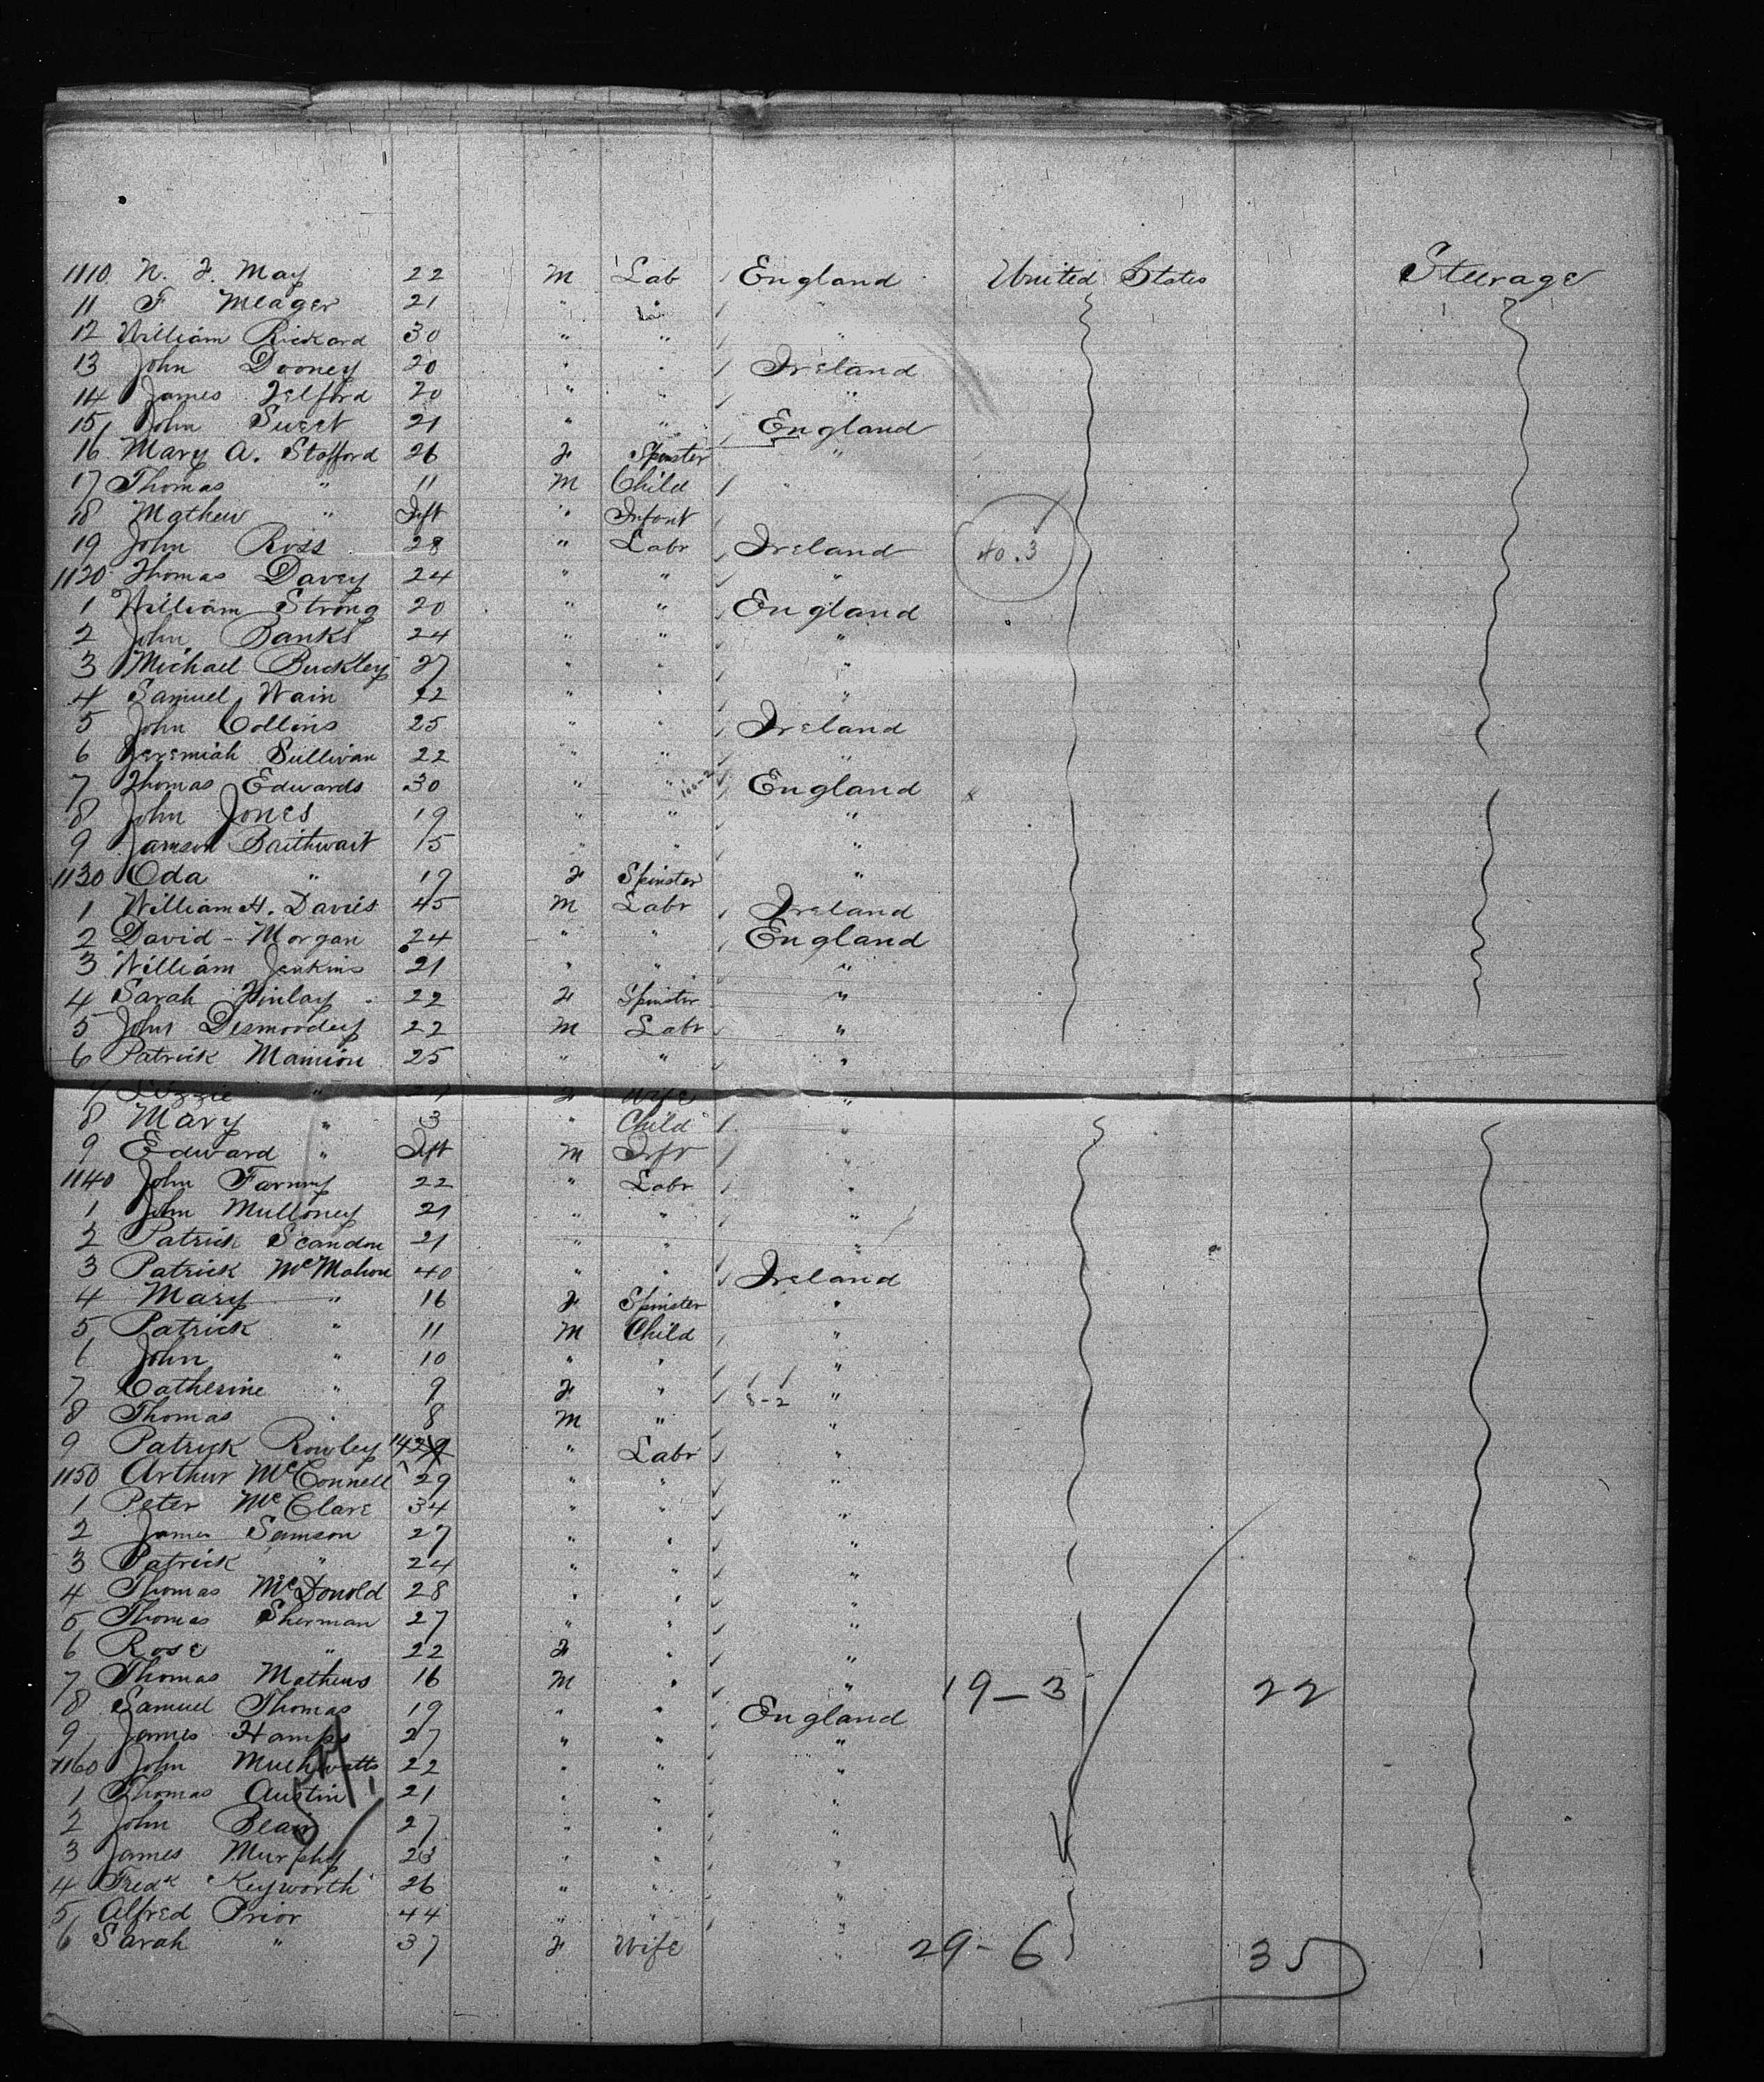 1110 N. F. May 22 M Lab England United States Steerage
11 F Meager 21 " " "
12 William Rickard 30 " " "
13 John Dooney 20 " " Ireland
14 James Telford 20 " " "
15 John Sweet 21 " " England
16 Mary A. Stafford 26 F Spinster "
17 Thomas " 11 M Child "
18 Mathew " Inft " Infant
19 John Ross 28 " Labr Ireland No. 3
1120 Thomas Davey 24 " " "
1 William Strong 20 " " England
2 John Banks 24 " " "
3 Michael Buckley 27 " " "
4 Samuel Wain 22 " " "
5 John Collins 25 " " Ireland
6 Jeremiah Sullivan 22 " " "
7 Thomas Edwards 30 " " England x
8 John Jones 19 " " "
9 Jamson Baithwait 15 " " "
1130 Oda " 19 F Spinster "
1 William H. Davies 45 M Labr Ireland
2 David - Morgan 24 " " England
3 William Jenkins 21 " " "
4 Sarah Finlay 22 F Spinster "
5 John 22 M Labr "
6 Patrick Mannion 25 " " "
7 Lizzie " F Wife "
8 Mary " 3 " Child "
9 Edward " Inft M Inft "
1140 John 22 " Labr "
1 John Mulloney 21 " " "
2 Patrick Scandon 21 " " "
3 Patrick McMahon 40 " " Ireland
4 Mary " 16 F Spinster "
5 Patrick " 11 M Child "
6 John " 10 " " "
7 Catherine " 9 F " 8-2 "
8 Thomas " 8 M " "
9 Patrick Rowley 29 " Labr "
1150 Arthur McConnell 29 " " "
1 Peter McClare 34 " " "
2 James Samson 27 " " "
3 Patrick " 24 " " "
4 Thomas McDonold 28 " " "
5 Thomas Sherman 27 " " "
6 Rose " 22 F " "
7 Thomas Mathews 16 M " " 19-3 22
8 Samuel Thomas 19 " " England
9 James Hamps 27 " " "
1160 John 22 " " "
1 Thomas Austin 21 " " "
2 John Blair 27 " " "
3 James Murphy 23 " " "
4 Fredk Keyworth 26 " " "
5 Alfred Prior 44 " " "
6 Sarah " 37 F Wife " 29-6 35